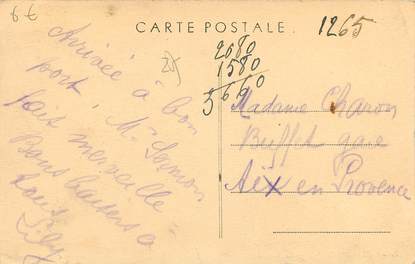 6€
CARTE POSTALE
1265
25
2080
1580
3660
Arrivée à bon
port, Mr Samson
fait merveille
Bons baisers à
tous
Lily
Madame Charon
Buffet gare
Aix en Provence